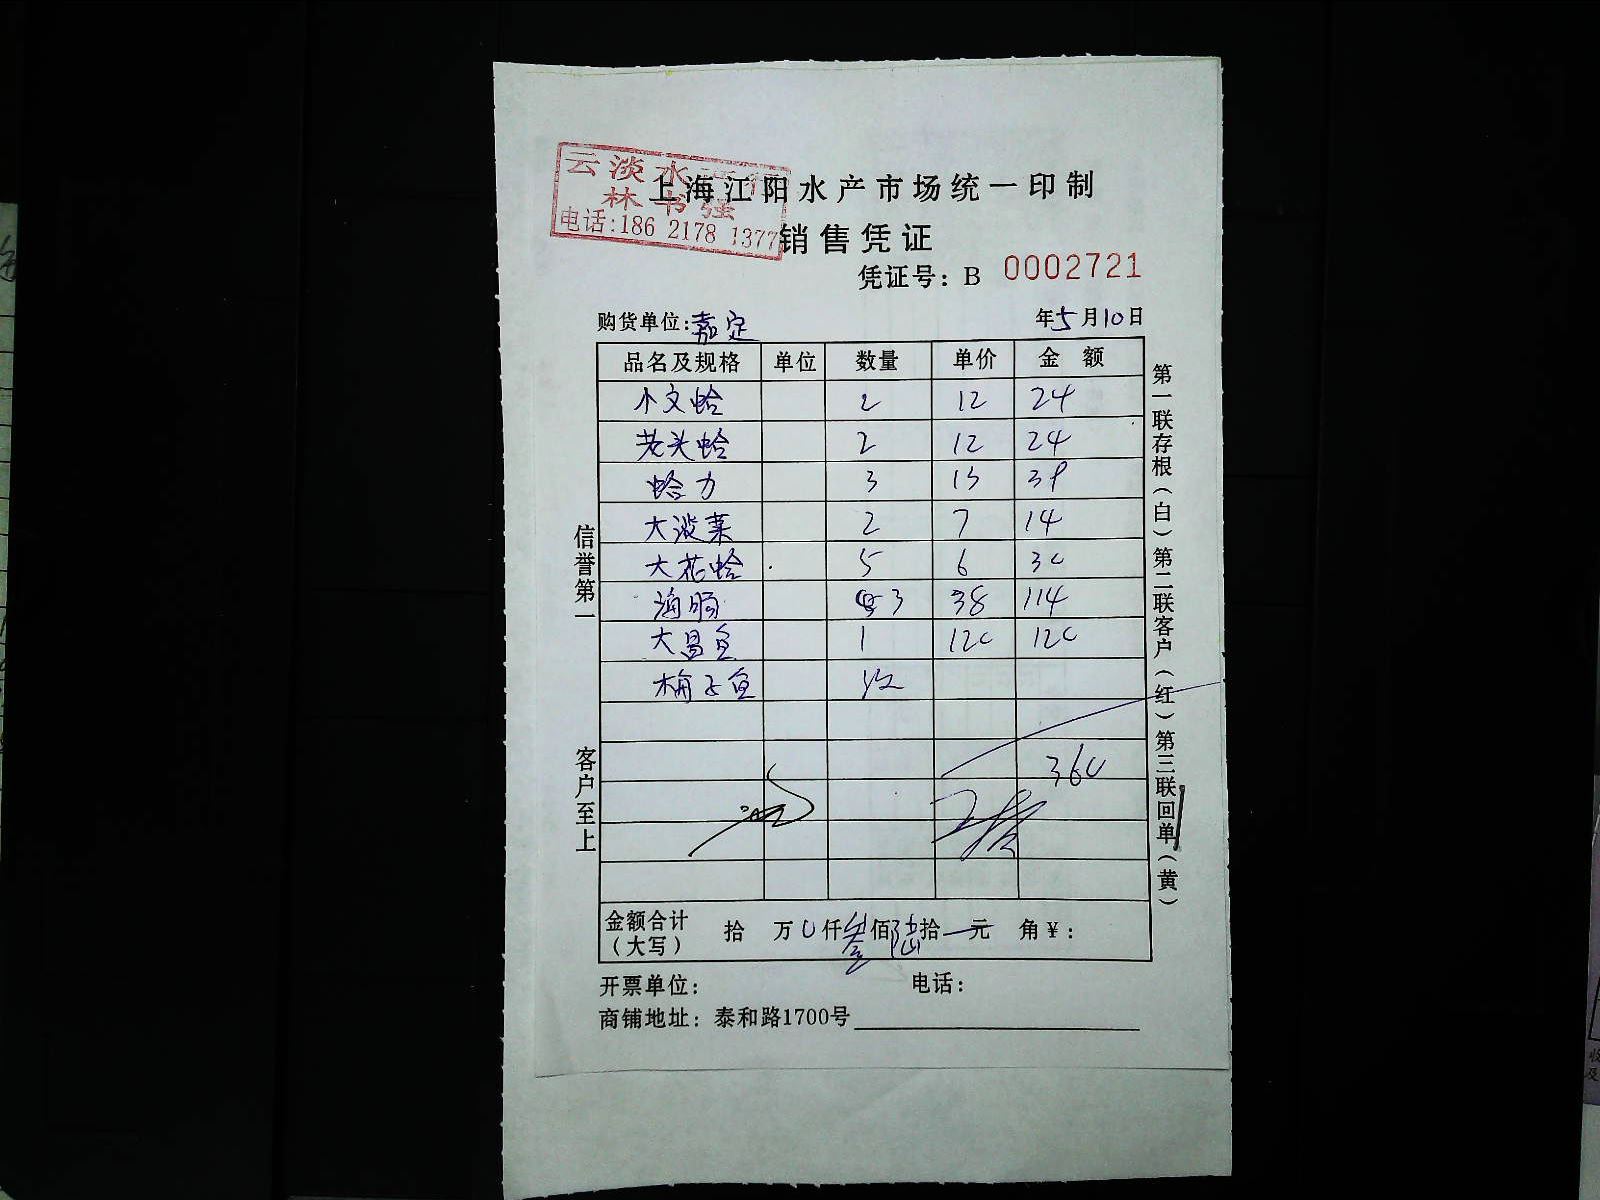 云淡水产行
林书强
电话:186 2178 1377
上海江阳水产市场统一印制
销售凭证
凭证号: B 0002721
购货单位: 嘉定 年5月10日
品名及规格 单位 数量 单价 金 额
小文蛤 2 12 24
老头蛤 2 12 24
蛤力 3 13 39
大淡菜 2 7 14
大花蛤 5 6 30
海肠 3 38 114
大昌鱼 1 120 120
梅子鱼
360
金额合计
(大写) 拾 万0仟叁佰陆拾一元 角¥:
开票单位: 电话:
商铺地址: 泰和路1700号
信誉第一
客户至上
第一联存根(白)第二联客户(红)第三联回单(黄)